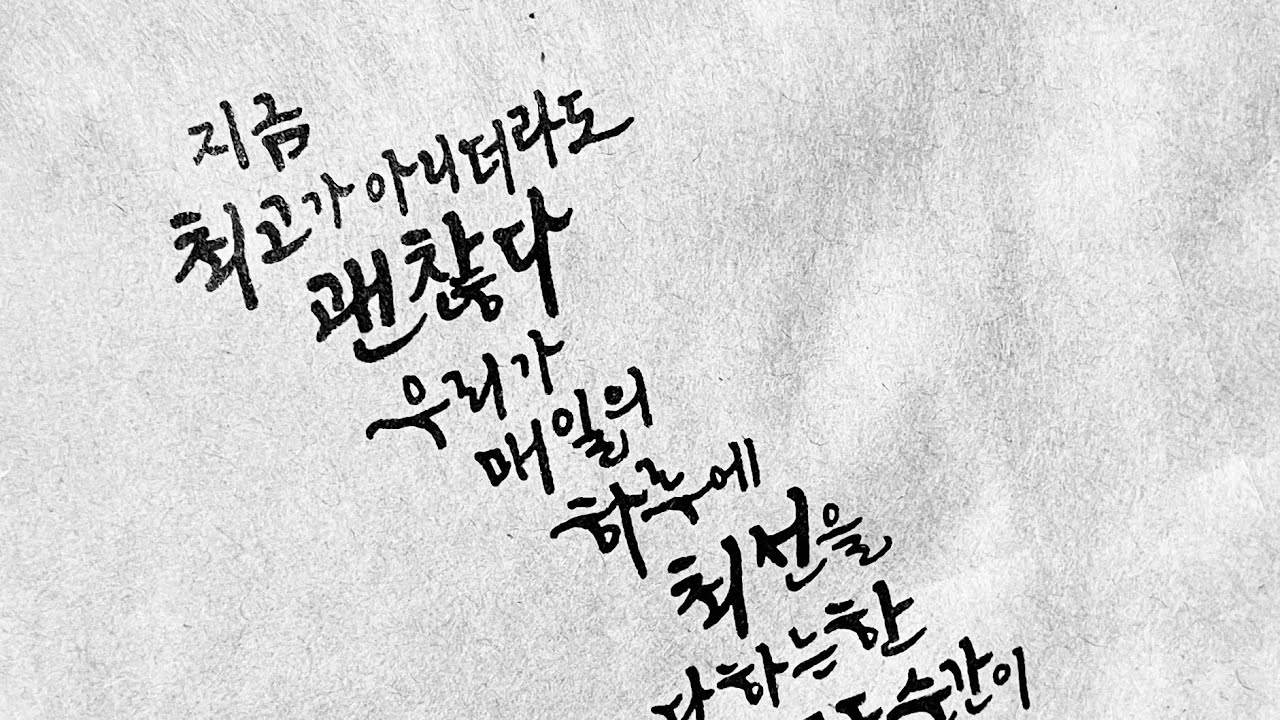 지금
최고가 아니더라도
괜찮다
우리가
매일의
하루에
최선을
다하는 한
순간이